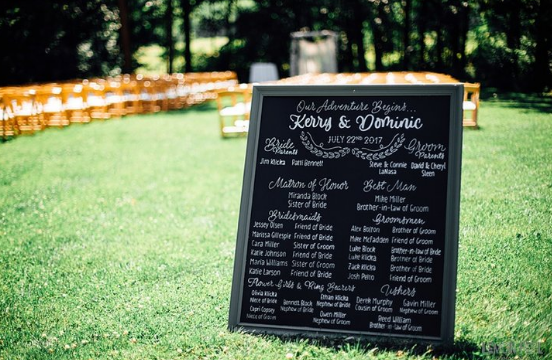 Our Adventure Begins...
Kerry & Dominic
JULY 22ND 2017
Bride
Parents
Jim Klicka Patti Bennett
Groom
Parents
Steve & Connie David & Cheryl
LaNasa Steen
Matron of Honor
Miranda Block
Sister of Bride
Best Man
Mike Miller
Brother-in-law of Groom
Bridesmaids
Jessey Olsen Friend of Bride
Marissa Gillespie Friend of Bride
Cara Miller Sister of Groom
Katie Johnson Friend of Bride
Maria Williams Sister of Groom
Katie Larson Friend of Bride
Groomsmen
Alex Bolton Brother of Groom
Mike McFadden Friend of Groom
Luke Block Brother-in-law of Bride
Luke Klicka Brother of Bride
Zack Klicka Brother of Bride
Josh Peino Friend of Groom
Flower Girls & Ring Bearers
Olivia Klicka
Niece of Bride
Capri Copsey
Niece of Groom
Bennett Block
Nephew of Bride
Ethan Klicka
Nephew of Bride
Owen Miller
Nephew of Groom
Ushers
Derek Murphy
Cousin of Groom
Gavin Miller
Nephew of Groom
Reed William
Brother-in-law of Groom